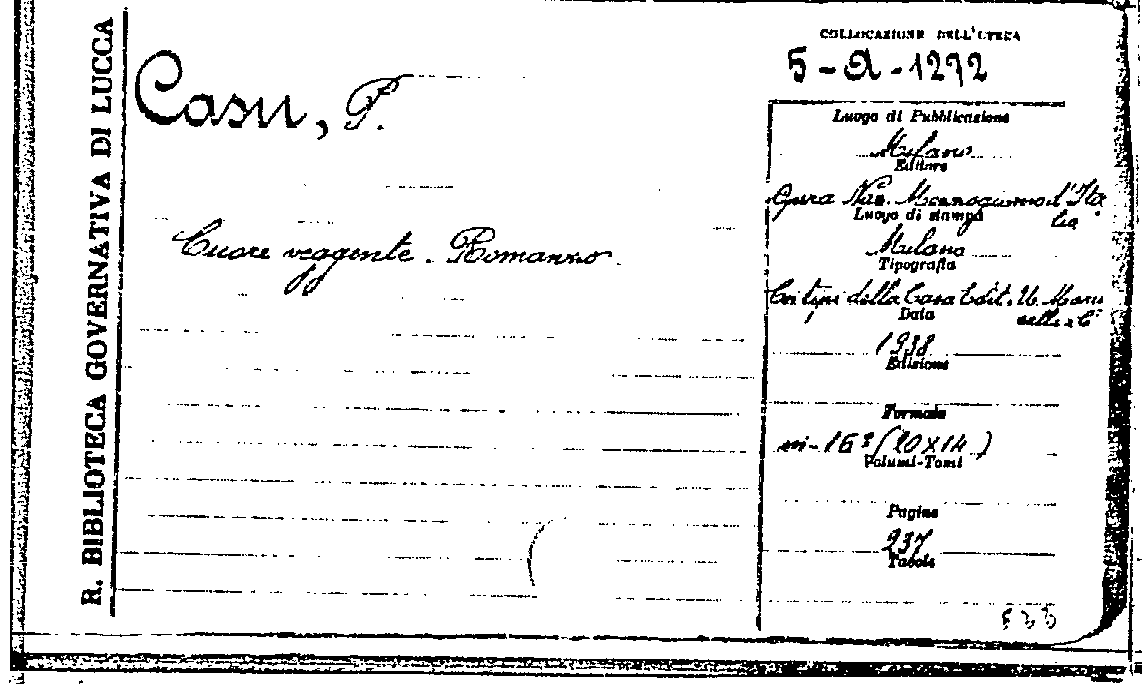 R. BIBLIOTECA GOVERNATIVA DI LUCCA
Casu, P.
Cuore veggente. Romanzo.
COLLOCAZIONE DELL'OPERA
5-A-1272
Luogo di Pubblicazione
Milano
Editore
Opera Naz. Mezzogiorno d'Ita
lia
Luogo di stampa
Milano
Tipografia
Coi tipi della Casa Edit. U.
Data
1938
Edizione
Formato
in-16° (20X14)
Volumi-Tomi
Pagine
237
Tavole